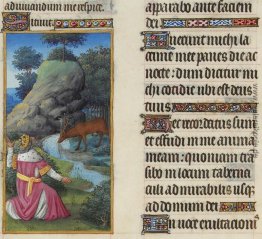 adiuuandum me respice.
apparabo ante faciem
dei
Fuerunt michi la
crime mee panes die ac
nocte: dum dicitur mi
chi cotidie ubi est deus
tuus
Hec recordatus sum
et effudi in me animam
meam: quoniam tra
sibo in locum taberna
culi admirabilis usq
ad domum dei
In uoce exultacioni